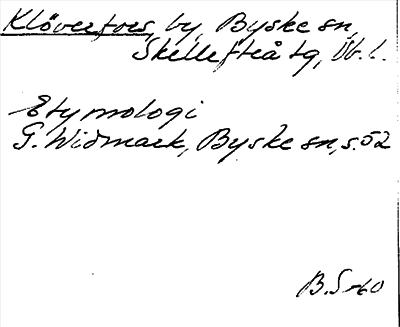 Klöverfors, by, Byske sn,
Skellefteå tg, Vb. l.
Etymologi
G. Widmark, Byske sn, s. 52
B.S-60